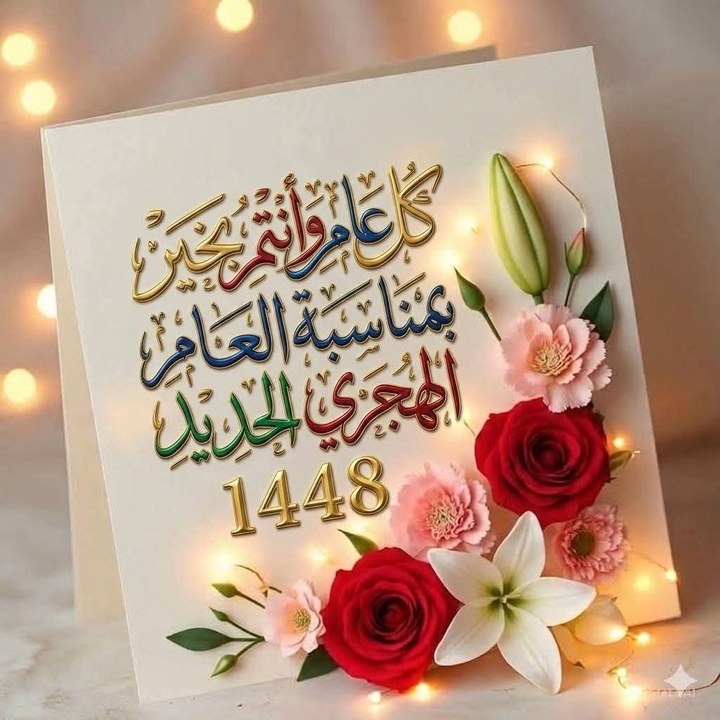 كُل عَامٍ وَأَنْتُمْ بِخَيْرٍ
بِمُنَاسَبَةِ العَامِ
الهِجْرِي الجَدِيدِ
1448